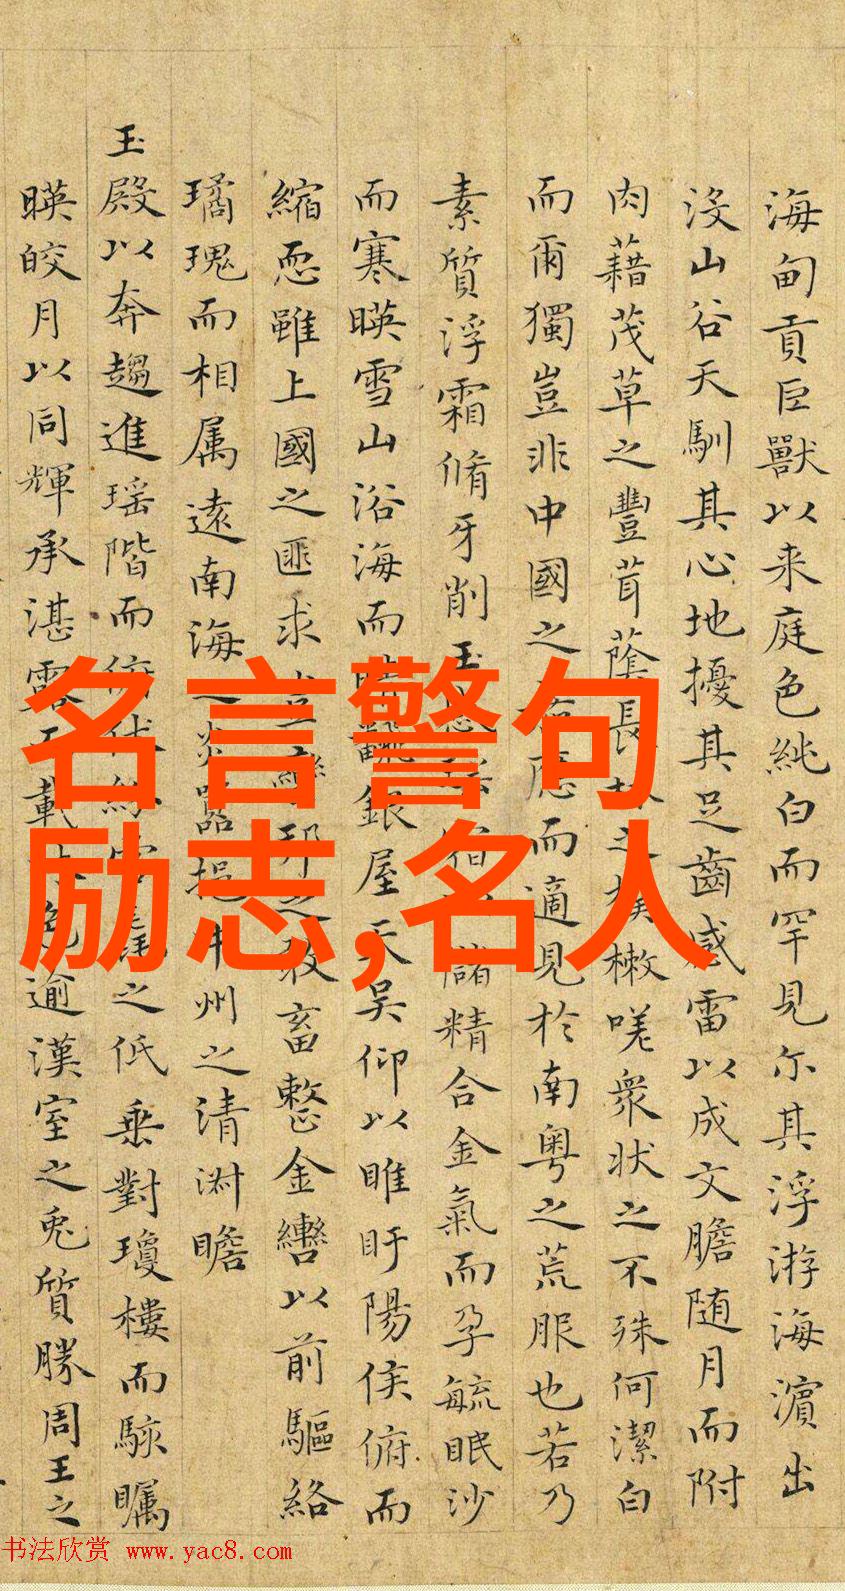 海甸貢巨獸以来庭色純白而罕見尓其浮游海濵出
没山谷天馴其心地擾其足齒感雷以成文膽随月而附
肉藉茂草之豐茸蔭長林之樸樕嗟衆状之不殊何潔白
而爾獨豈非中國之應而適見於南粤之荒服也若乃
素質浮霜脩牙削玉儲精合金氣而孕毓眠沙
而寒暎雪山浴海而銀屋天吴仰以睢盱陽侯俯而
縮恧雖上國之匪求豈之牧畜整金轡以前驅絡
璚瑰而相属遠南海之炎州之清渊瞻
玉殿以奔趨進瑶階而俯伏之低乗對瓊樓而駭矚
暎皎月以同輝承湛露逾漢室之兎質勝周王之
名言警句
励志,名人
书法欣赏 www.yac8.com